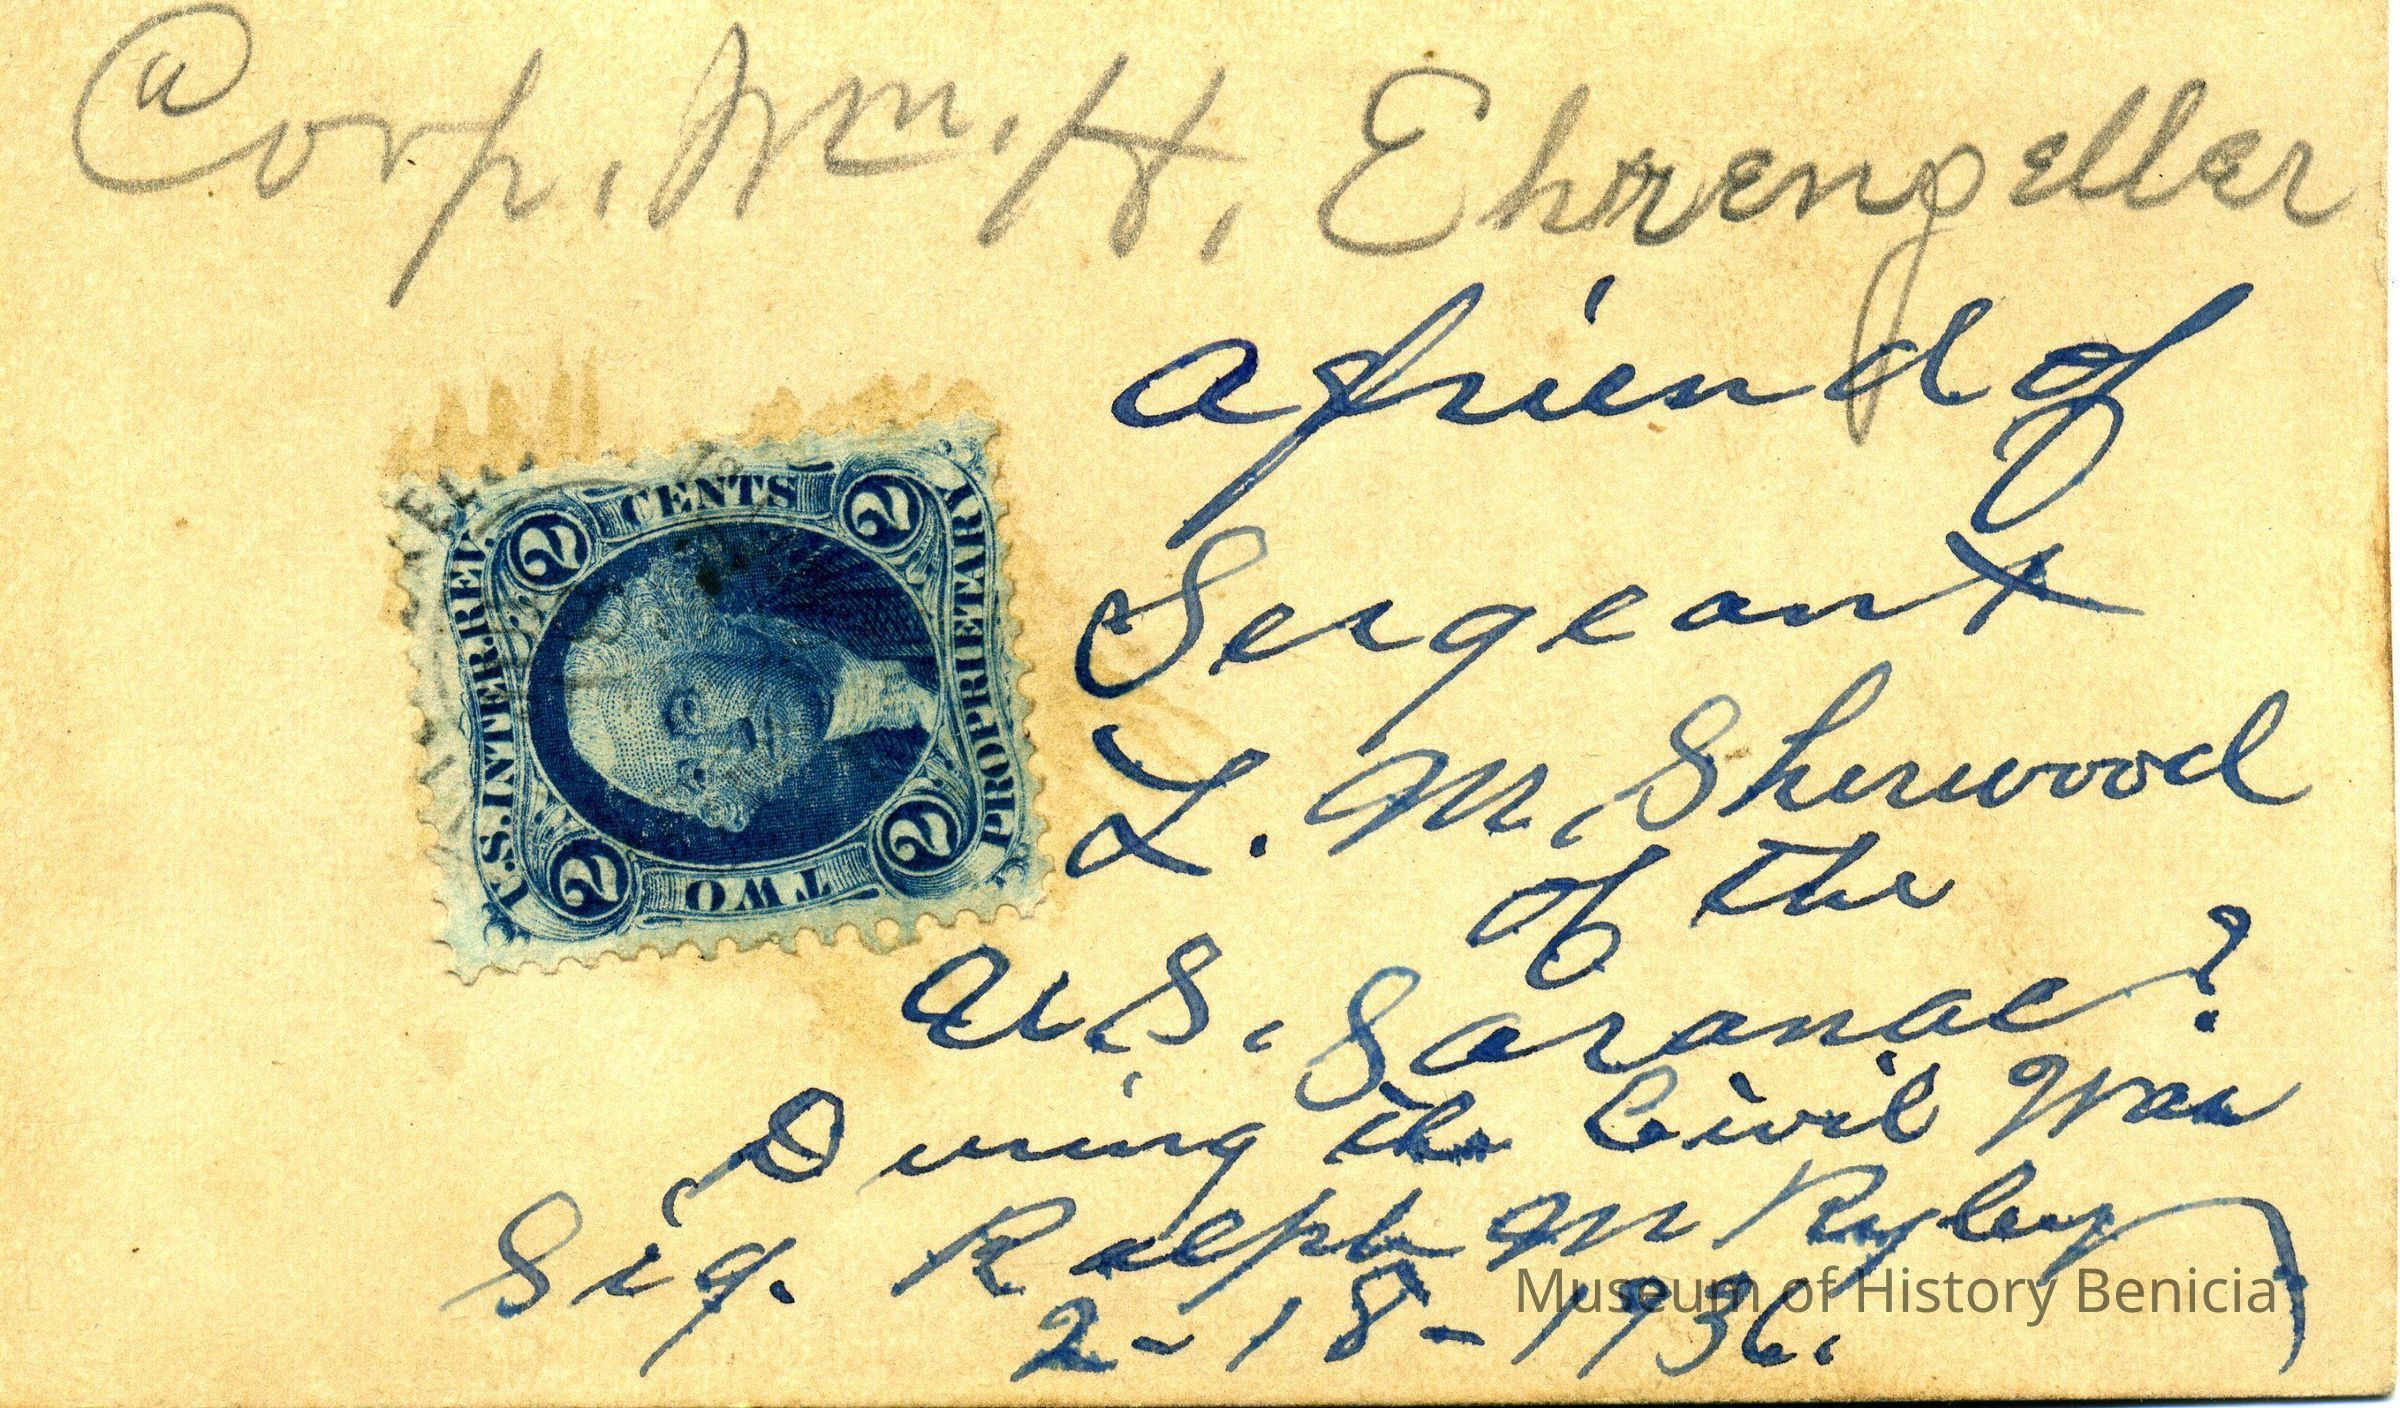 Corp. Wm. H. Ehrengeller
a friend of
Sergeant
L. M. Sherwood
of the
U.S. Saranac?
During the Civil War
Sig. Ralph M Ryley
2-18-1936.
U.S. INTER. REV.
2 CENTS 2
PROPRIETARY
2 TWO 2
Museum of History Benicia